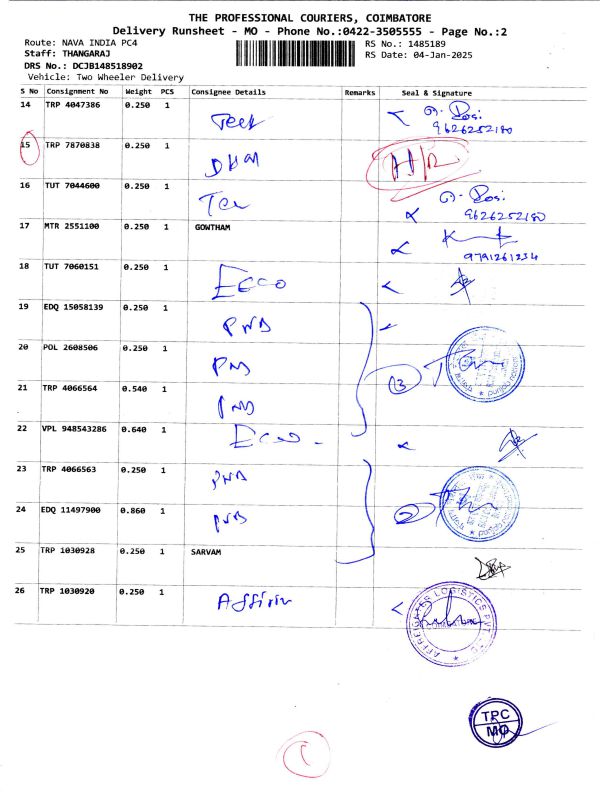 THE PROFESSIONAL COURIERS, COIMBATORE
Delivery Runsheet - MO - Phone No.:0422-3505555 - Page No.:2
Route: NAVA INDIA PC4
RS No.: 1485189
Staff: THANGARAJ
RS Date: 04-Jan-2025
DRS No.: DCJB148518902
Vehicle: Two Wheeler Delivery
S No Consignment No Weight PCS Consignee Details Remarks Seal & Signature
14 TRP 4047386 0.250 1
9626252180
15 TRP 7870838 0.250 1 H/R
16 TUT 7044600 0.250 1
9626252180
17 MTR 2551100 0.250 1 GOWTHAM
9791261234
18 TUT 7060151 0.250 1 Ecco
19 EDQ 15058139 0.250 1 PNB
20 POL 2608506 0.250 1 PNB
21 TRP 4066564 0.540 1 PNB
3
22 VPL 948543286 0.640 1 Ecco
23 TRP 4066563 0.250 1 PNB
24 EDQ 11497900 0.860 1 PNB
2
25 TRP 1030928 0.250 1 SARVAM
26 TRP 1030920 0.250 1
TPC
MO